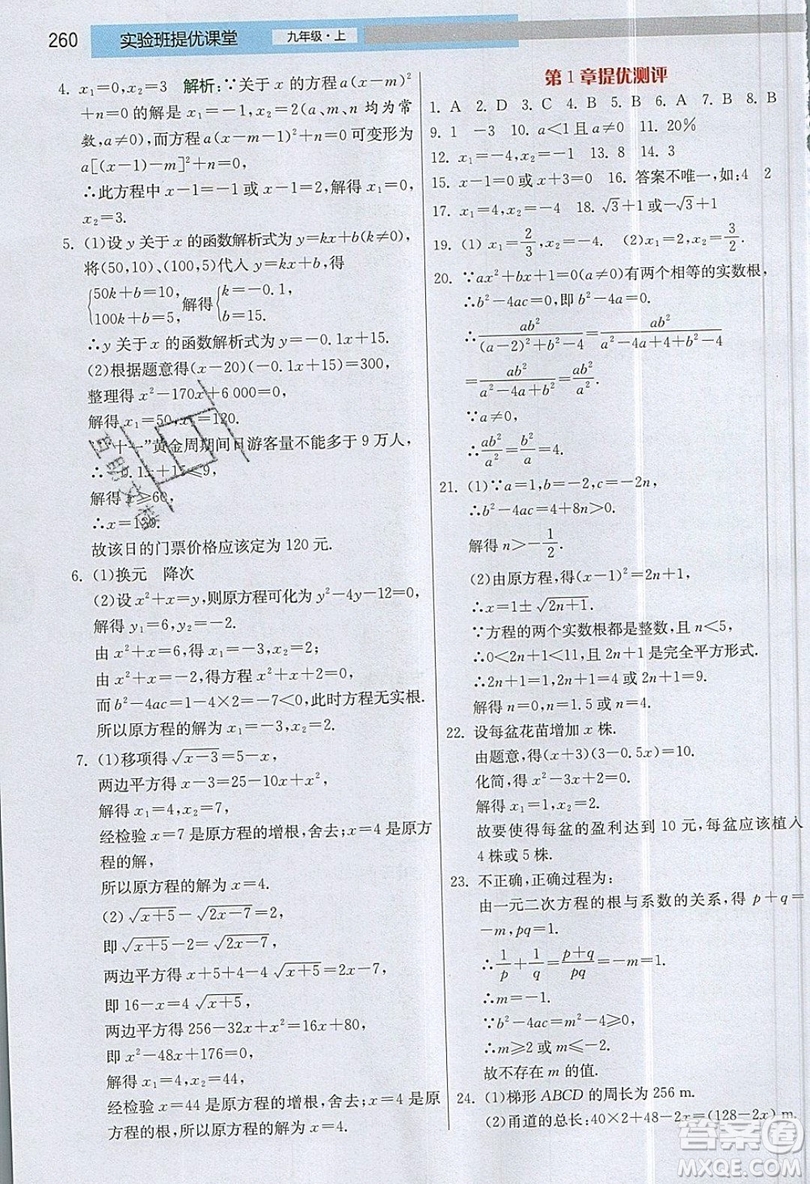 260 实验班提优课堂 九年级·上
4. x₁=0,x₂=3 解析:∵关于 x 的方程 a(x-m)²
+n=0 的解是 x₁=-1,x₂=2(a、m、n 均为常
数,a≠0),而方程 a(x-m-1)²+n=0 可变形为
a[(x-1)-m]²+n=0,
∴此方程中 x-1=-1 或 x-1=2,解得 x₁=0,
x₂=3.
5. (1)设 y 关于 x 的函数解析式为 y=kx+b(k≠0),
将(50,10)、(100,5)代人 y=kx+b 得
{50k+b=10, 100k+b=5, 解得{k=-0.1, b=15.
∴y 关于 x 的函数解析式为 y=-0.1x+15.
(2)根据题意得(x-20)(-0.1x+15)=300,
整理得 x²-170x+6 000=0,
解得 x₁=50,x₂=120.
“十一”黄金周期间日游客量不能多于 9 万人,
∴-0.1x+15≤9,
解得 x≥60,
∴x=120.
故该日的门票价格应该定为 120 元.
6. (1)换元 降次
(2)设 x²+x=y,则原方程可化为 y²-4y-12=0,
解得 y₁=6,y₂=-2.
由 x²+x=6,得 x₁=-3,x₂=2;
由 x²+x=-2,得方程 x²+x+2=0,
而 b²-4ac=1-4×2=-7<0,此时方程无实根.
所以原方程的解为 x₁=-3,x₂=2.
7. (1)移项得 √(x-3)=5-x,
两边平方得 x-3=25-10x+x²,
解得 x₁=4,x₂=7,
经检验 x=7 是原方程的增根,舍去;x=4 是原方
程的解,
所以原方程的解为 x=4.
(2)√(x+5)-√(x-7)=2,
即 √(x+5)-2=√(x-7),
两边平方得 x+5+4-4√(x+5)=x-7,
即 16-x=4-√(x+5),
两边平方得 256-32x+x²=x+5,
即 x²-33x+251=0,
解得 x₁=4,x₂=44,
经检验 x=44 是原方程的增根,舍去;x=4 是原
方程的解,所以原方程的解为 x=4.
第 1 章提优测评
1. A 2. D 3. C 4. B 5. B 6. A 7. B 8. B
9. 1 -3 10. a<1 且 a≠0 11. 20%
12. x₁=-4,x₂=-1 13. 8 14. 3
15. x-1=0 或 x+3=0 16. 答案不唯一,如:4 2
17. x₁=4,x₂=-4 18. √3+1 或-√3+1
19. (1) x₁=2/3,x₂=-4. (2)x₁=x₂=3/2.
20. ∵ax²+bx+1=0(a≠0)有两个相等的实数根,
∴b²-4ac=0,即 b²-4a=0.
∴ab²/((a-2)²+b²-4)=ab²/(a²-4a+4+b²-4)
=ab²/(a²-4a+b²)=ab²/a².
∵a≠0,
∴ab²/a²=b²/a=4a/a=4.
21. (1)∵a=1,b=-2,c=-2n,
∴b²-4ac=4+8n>0.
解得 n>-1/2.
(2)由原方程,得(x-1)²=2n+1,
∴x=1±√(2n+1).
∵方程的两个实数根都是整数,且 n<5,
∴0<2n+1<11,且 2n+1 是完全平方形式.
∴2n+1=1,2n+1=4 或 2n+1=9.
解得 n=0,n=1.5 或 n=4.
22. 设每盆花苗增加 x 株.
由题意,得(x+3)(3-0.5x)=10,
化简,得 x²-3x+2=0,
解得 x₁=1,x₂=2.
故要使得每盆的盈利达到 10 元,每盆应该植入
4 株或 5 株.
23. 不正确,正确过程为:
由一元二次方程的根与系数的关系,得 p+q=
-m,pq=1.
∴1/p+1/q=(p+q)/pq=-m/1=1.
∴m=-1.
∵b²-4ac=m²-4≥0,
∴m≥2 或 m≤-2.
故不存在 m 的值.
24. (1)梯形 ABCD 的周长为 256 m.
(2)甬道的总长:40×2+48-2x=(128-2x) m.
答案圈
MXQE.COM